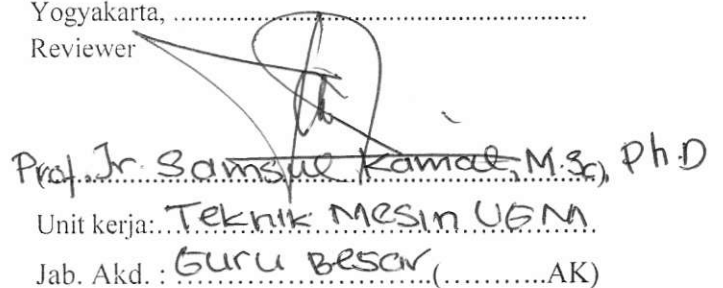 Yogyakarta, ......................................................................
Reviewer
Prof. Ir. Samsul Kamal, M.Sc, Ph.D
Unit kerja: Teknik Mesin UGM
Jab. Akd. : Guru Besar (..........AK)